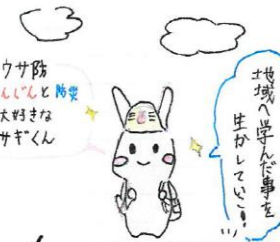 ウサ防
んじんと防災
大好きな
サギくん
地域へ学んだ事を
生かしていこ!